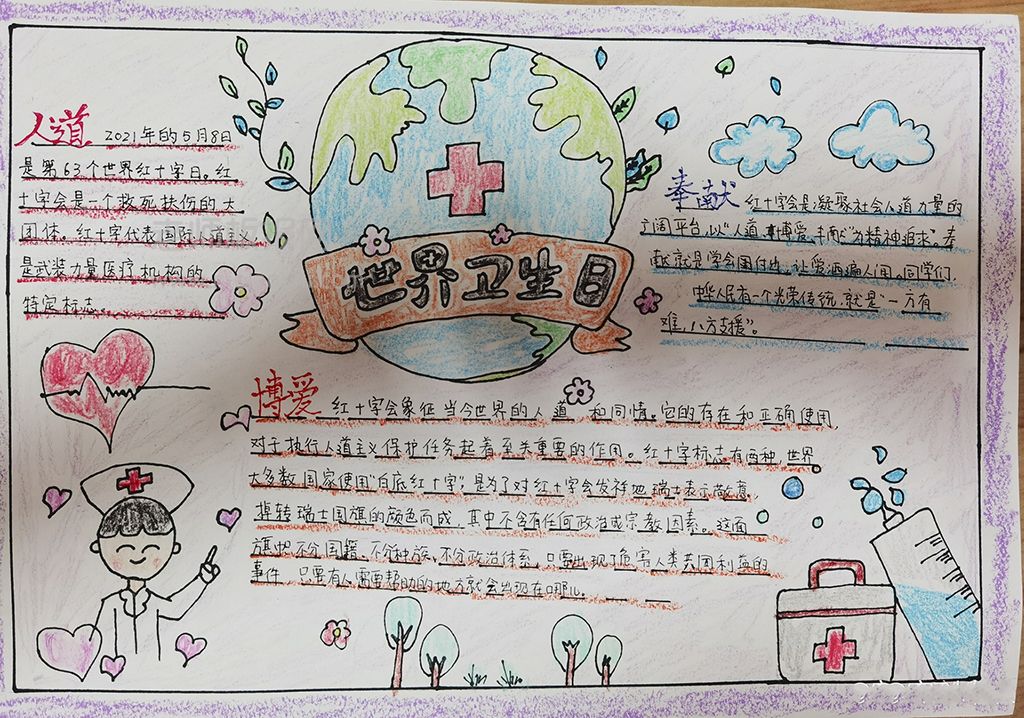 世界卫生日
人道 2021年的5月8日
是第63个世界红十字日。红
十字会是一个救死扶伤的大
团体。红十字代表国际人道主义,
是武装力量医疗机构的
特定标志
奉献 红十字会是凝聚社会人道力量的
广阔平台,以“人道 博爱 奉献”为精神追求”。奉
献就是学会付出,让爱洒满人间。同学们
中华人民有一个光荣传统,就是“一方有
难,八方支援”。
博爱 红十字会象征当今世界的人道 和同情。它的存在和正确使用
对于执行人道主义保护任务起着至关重要的作用。红十字标志有两种,世界
大多数国家使用“白底红十字”,是为了对红十字会发祥地瑞士表示敬意
掉转瑞士国旗的颜色而成,其中不含有任何政治或宗教因素。这面
旗帜不分国籍、不分种族,不分政治体系,只要出现了危害人类共同利益的
事件 只要有人需要帮助的地方就会出现在哪儿。